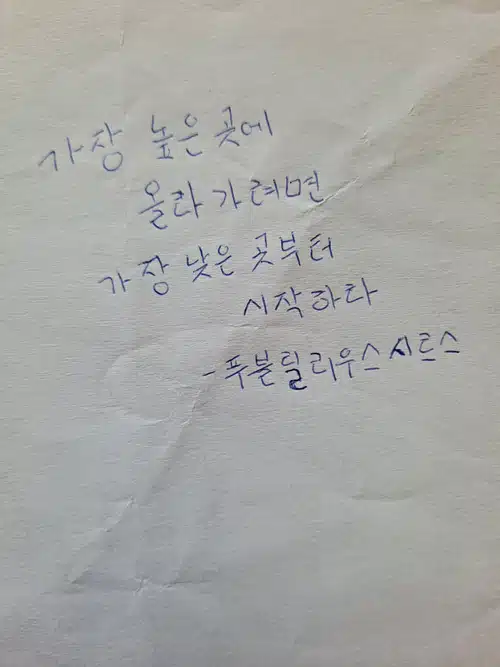 가장 높은 곳에
올라 가려면
가장 낮은 곳부터
시작하라
-푸블릴리우스 시르스